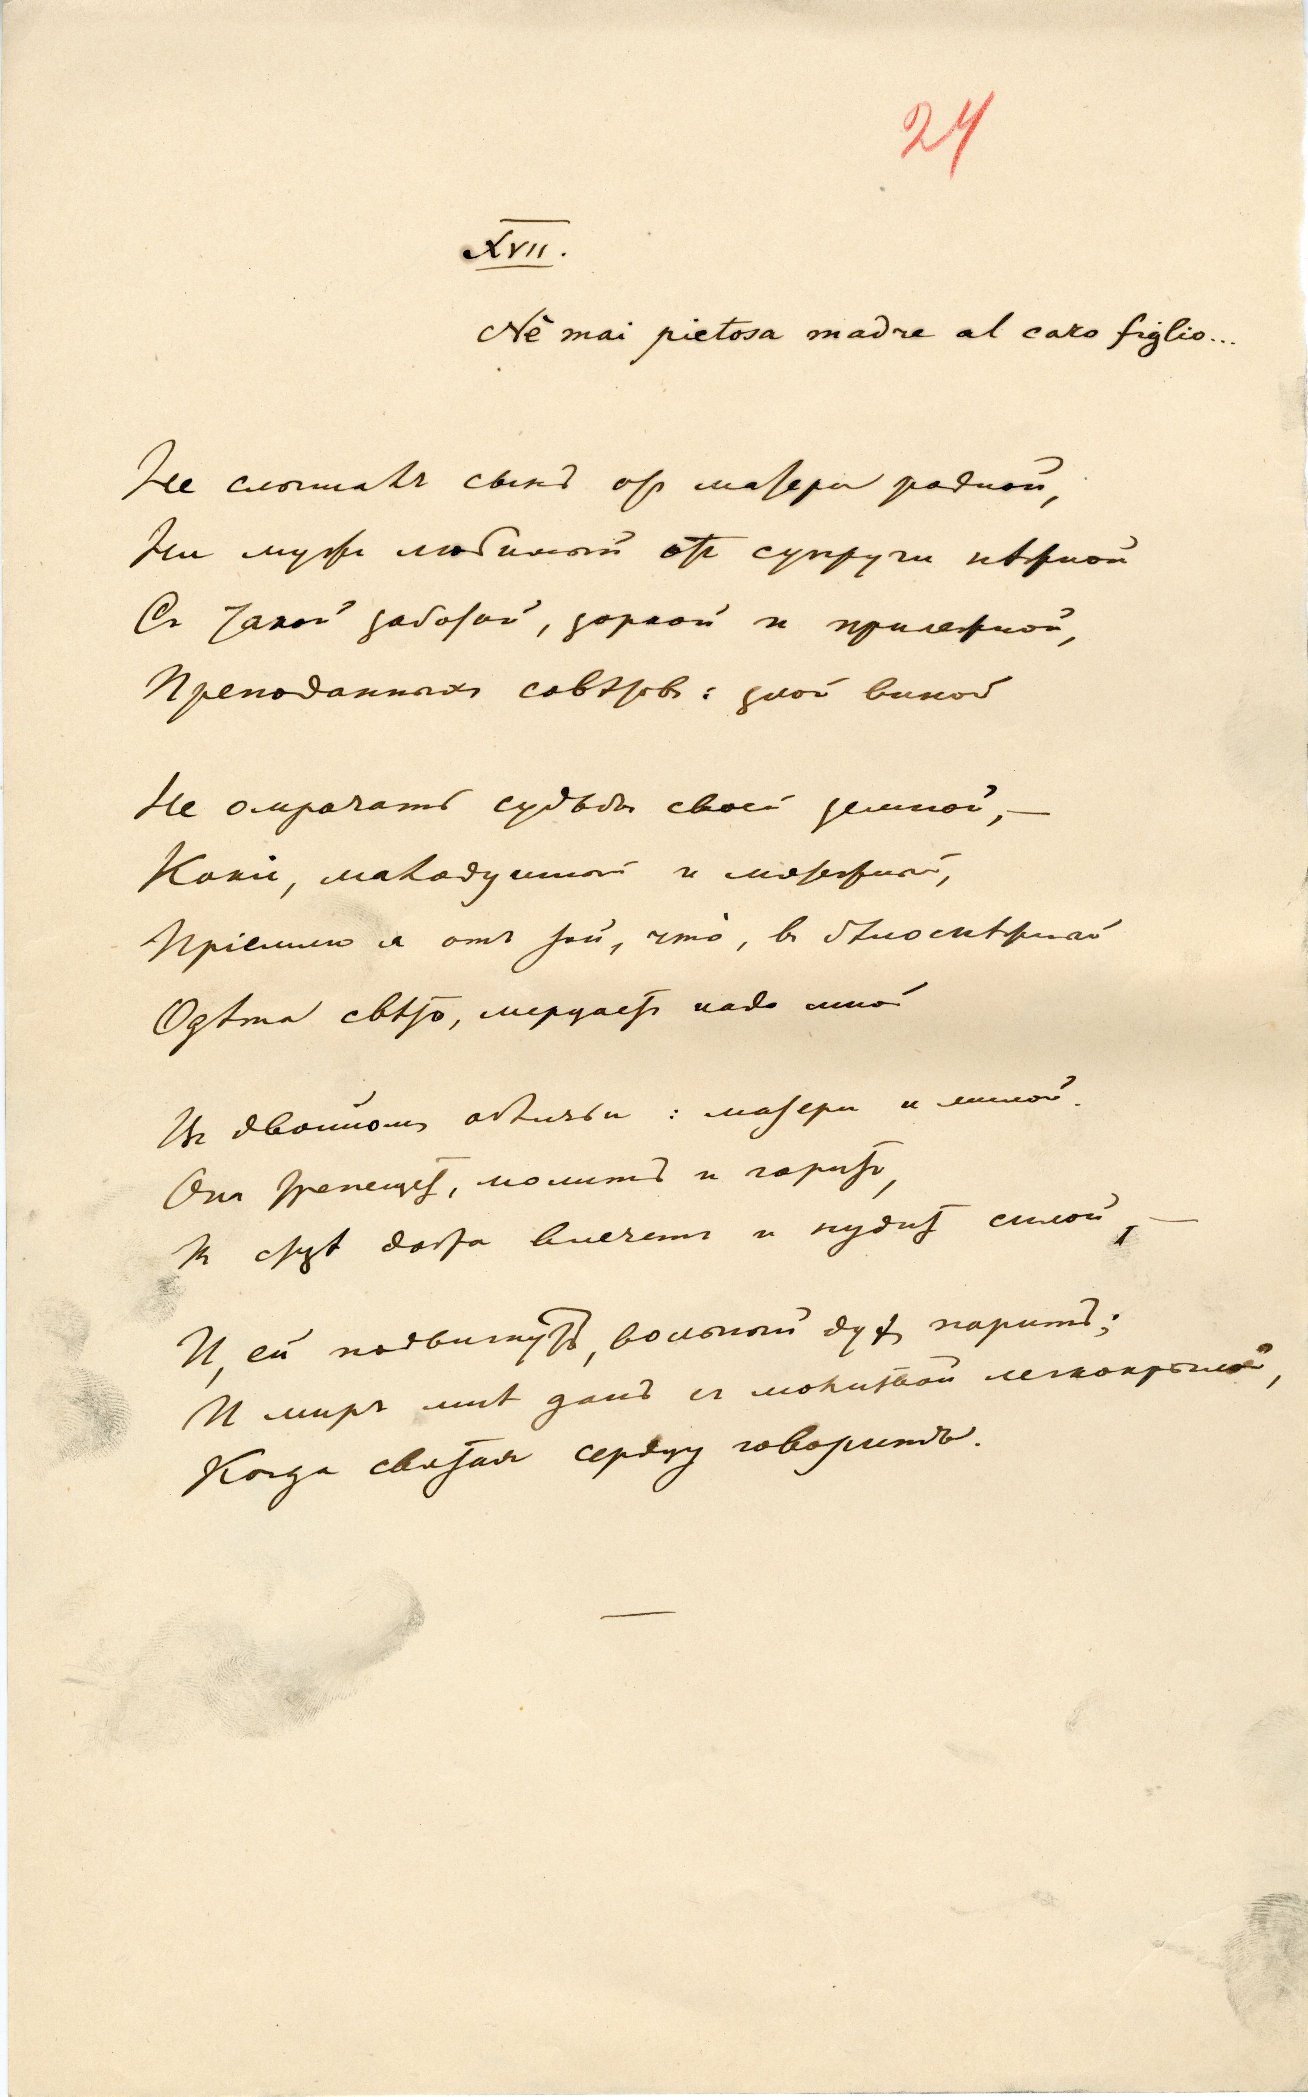 24
XVII.
Nè mai pietosa madre al caro figlio...
Не слыхалъ сынъ отъ матери родной,
Ни мужъ любимый отъ супруги нѣжной
Съ такой заботой, зоркой и прилежной,
Преподанныхъ совѣтовъ: злой виной
Не омрачатъ судьбы своей земной, —
Какіе, малодушный и мятежный,
Пріемлю я отъ той, что̀, въ бѣлоснѣжной
Одѣта свѣтъ, мерцаетъ надо мной
Въ двойномъ обличьи: матери и милой.
Она трепещетъ, молитъ и горитъ,
Къ стезѣ добра влечетъ и нудитъ силой, —
И, ей подвигнутъ, вольный духъ паритъ;
И миръ мнѣ данъ съ молитвой легкокрылой,
Когда святая сердцу говоритъ.